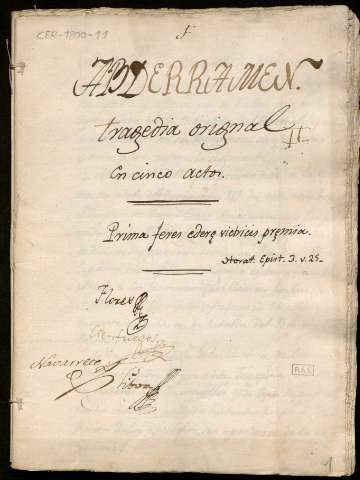 CER-1800-11
ABDERRAMEN.
tragedia orignal
En cinco actos.
Prima feres ederę victricis pręmia.
Horat. Epist. 3. v. 25.
Florez
Cienfuegos
Navarrete
RAE
1